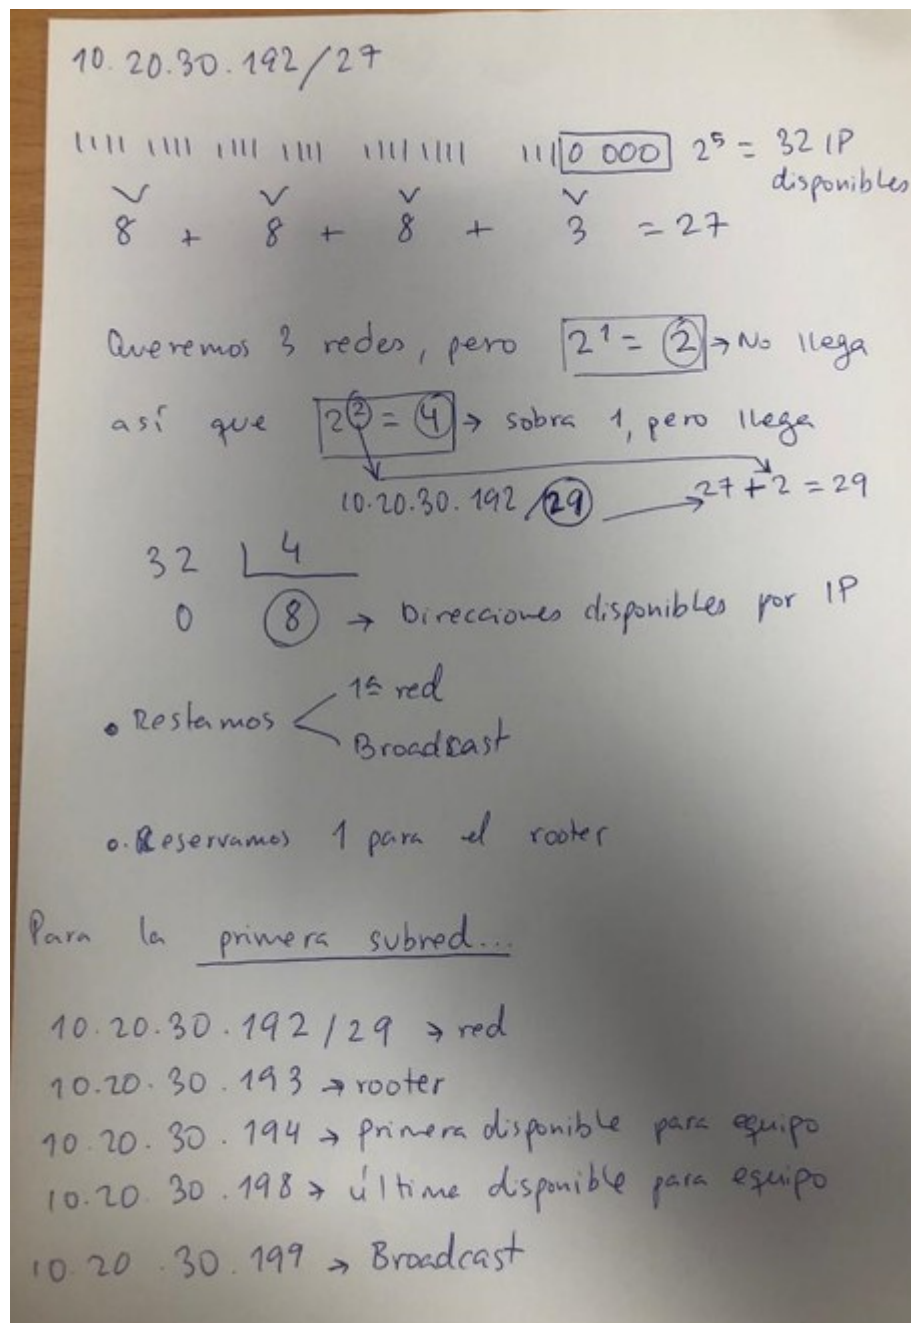 10.20.30.192/27
1111 1111 1111 1111 1111 1111 1110 000 2⁵ = 32 IP
disponibles
8 + 8 + 8 + 3 = 27
Queremos 3 redes, pero 2¹ = 2 → No llega
así que 2² = 4 → sobra 1, pero llega
10.20.30.192/29 → 27+2 = 29
32 | 4
0 8 → Direcciones disponibles por IP
• Restamos 1ª red
Broadcast
•. Reservamos 1 para el rooter
Para la primera subred...
10.20.30.192/29 → red
10.20.30.193 → rooter
10.20.30.194 → primera disponible para equipo
10.20.30.198 → última disponible para equipo
10.20.30.199 → Broadcast